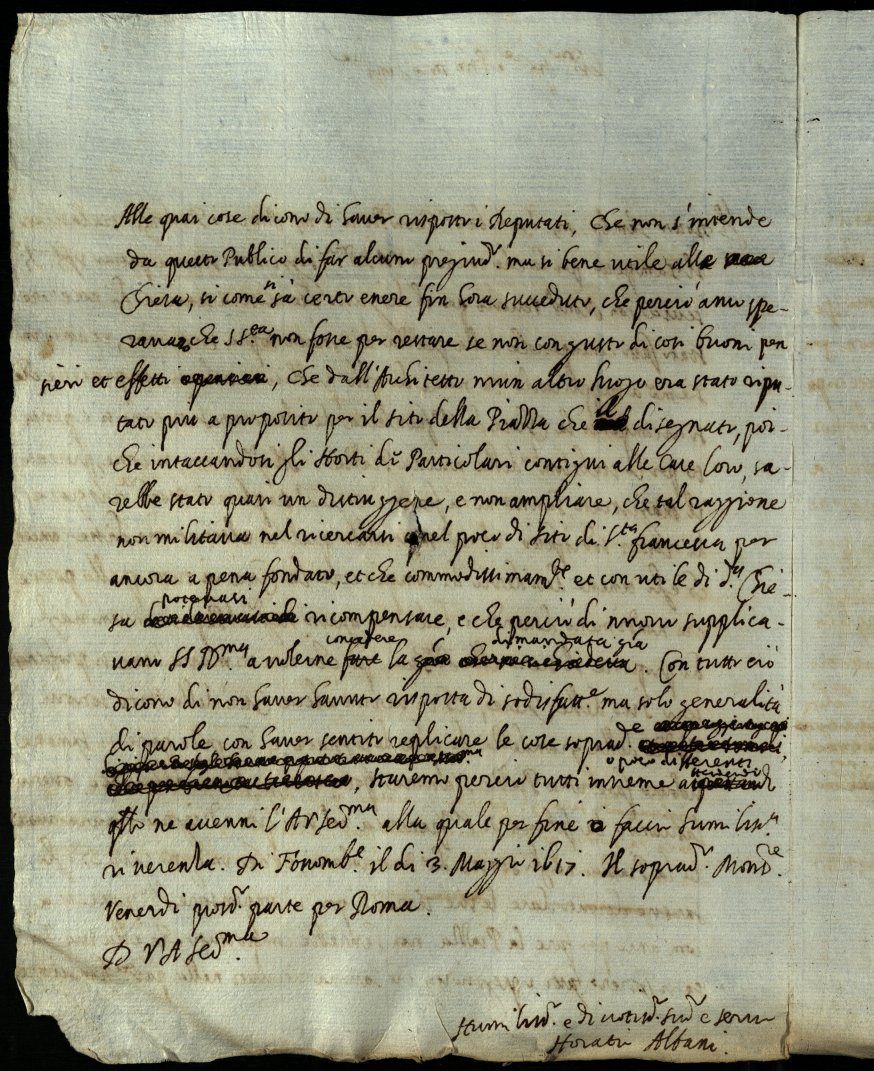 Alle quai cose dicono di haver risposto i Deputati, che non s'intende
da questo Publico di far alcun pregiud.o ma si bene utile alla sua
Chiesa, si come si sà certo enere fin hora succeduto, che perciò anco spe-
rava, che SS.ria non fosse per restare se non con gusto di così buoni pen
sieri et effetti, che dall'Architetto niun altro luogo era stato ripu-
tato più a proposito per il sito della Piazza che il disegnato, poi-
che intaccandosi gli Horti de Particolari contigui alle Case loro, sa-
rebbe stato quasi un distruggere, e non ampliare, che tal raggione
non militava nel ricercarsi quel poco di sito di S.ta francesca per
ancora a pena fondato, et che commodissimam.te et con utile di d.a Chie-
sa potevasi ricompensare, e che perciò di nuovo supplica-
vano SS Ill.ma a volerne concedere la dimandata già. Con tutto ciò
dicono di non haver havuto risposta di sodisfatt.e ma solo generalità
di parole con haver sentito replicare le cose soprad.e
o poco differenti
, staremo perciò tutti insieme attendendo
q.llo ne avenni l'A.V. Ser.ma alla quale per fine faccio humiliss.a
riverenza. Di Fossomb.e il di 3. Maggio 1617. Il soprad.o Mons.re
Venerdi pross.o parte per Roma.
D V A Ser.ma
Humiliss.o e divotiss.o sud.o e servo
Horatio Albani.